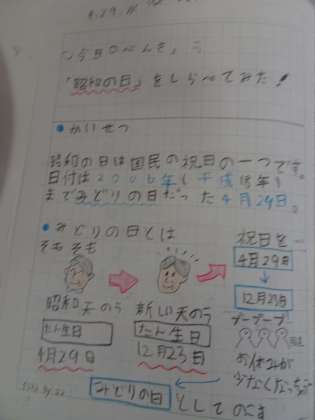 今日のべんきょう
「昭和の日」をしらべてみた！
かいせつ
昭和の日は国民の祝日の一つです。
日付は2006年(平成18年)
までみどりの日だった4月29日。
みどりの日とは
そもそも
昭和天のう
たん生日
4月29日
新しい天のう
たん生日
12月23日
祝日を
4月29日
12月23日
ブーブーブー
お休みが
少なくなっち
みどりの日
としてのこす